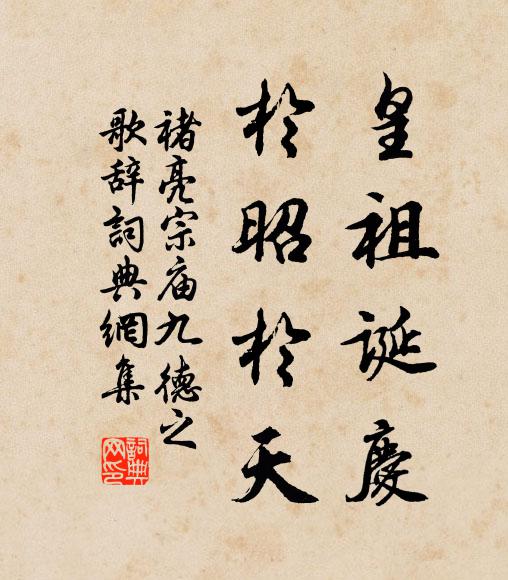 皇祖誕慶
於昭於天
褚亮宗庙九德之
歌辞詞典網集
詞典網印